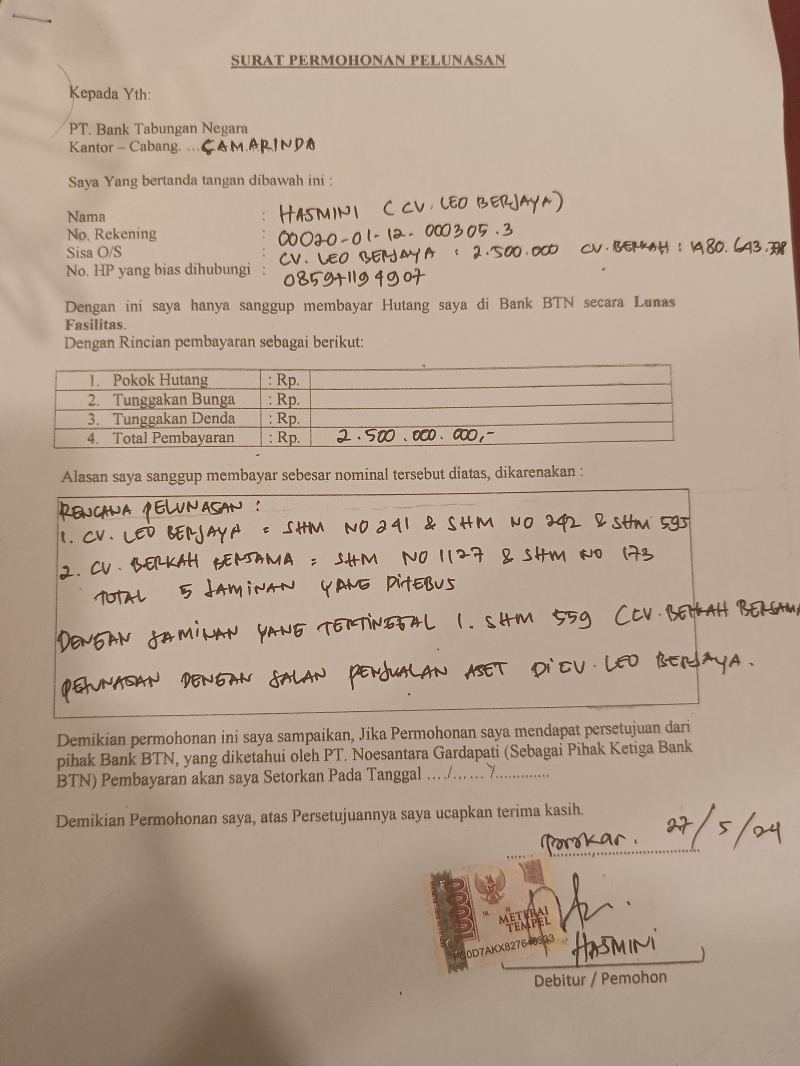 SURAT PERMOHONAN PELUNASAN
Kepada Yth:
PT. Bank Tabungan Negara
Kantor – Cabang. ...SAMARINDA
Saya Yang bertanda tangan dibawah ini :
Nama : HASMINI ( CV. LEO BERJAYA)
No. Rekening : 00020-01-12-000305.3
Sisa O/S : CV. LEO BERJAYA : 2.500.000 CV. BERKAH : 1480.643.
No. HP yang bias dihubungi :
Dengan ini saya hanya sanggup membayar Hutang saya di Bank BTN secara Lunas
Fasilitas.
Dengan Rincian pembayaran sebagai berikut:
1. Pokok Hutang : Rp.
2. Tunggakan Bunga : Rp.
3. Tunggakan Denda : Rp.
4. Total Pembayaran : Rp. 2.500.000.000,-
Alasan saya sanggup membayar sebesar nominal tersebut diatas, dikarenakan :
RENCANA PELUNASAN :
1. CV. LEO BERJAYA = SHM NO 241 & SHM NO 242 & SHM 595
2. CV. BERKAH BERSAMA = SHM NO 1127 & SHM NO 173
TOTAL 5 JAMINAN YANG DITEBUS
DENGAN JAMINAN YANG TERTINGGAL 1. SHM 559 (CV. BERKAH BERSAMA
PELUNASAN DENGAN JALAN PENJUALAN ASET DI CV. LEO BERJAYA.
Demikian permohonan ini saya sampaikan, Jika Permohonan saya mendapat persetujuan dari
pihak Bank BTN, yang diketahui oleh PT. Noesantara Gardapati (Sebagai Pihak Ketiga Bank
BTN) Pembayaran akan saya Setorkan Pada Tanggal ..../....../.............
Demikian Permohonan saya, atas Persetujuannya saya ucapkan terima kasih.
27/5/24
10000
METERAI
TEMPEL
HASMINI
Debitur / Pemohon